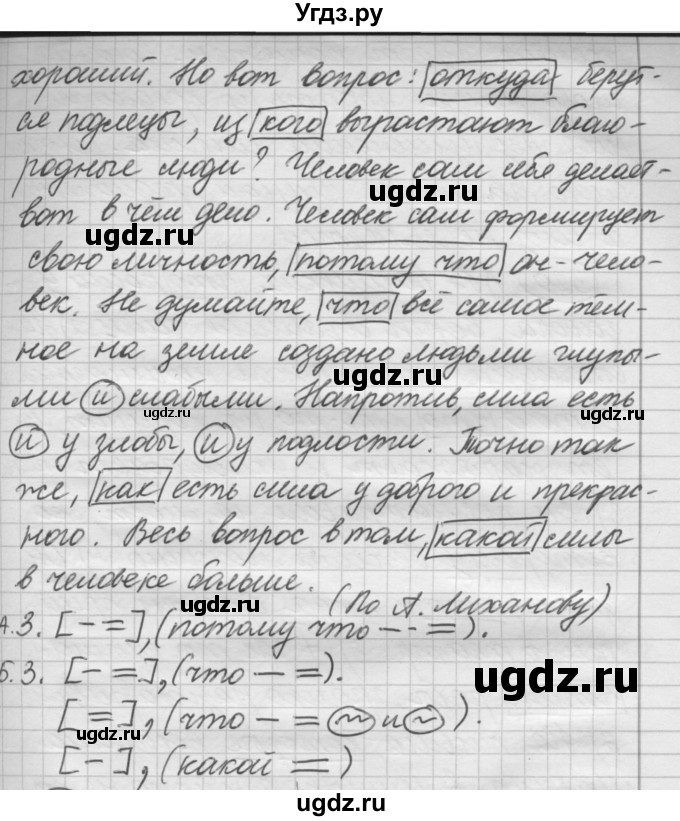 Угдз.ру
хороший. Но вот вопрос: откуда берут-
ся подлецы, из кого вырастают благо-
родные люди? Человек сам себя делает-
вот в чём дело. Человек сам формирует
свою личность, потому что он - чело-
век. Не думайте, что всё самое тём-
ное на земле создано людьми глупы-
ми и слабыми. Напротив, сила есть
и у злобы, и у подлости. Точно так
же, как есть сила у доброго и прекрас-
ного. Весь вопрос в том, какой силы
в человеке больше.
(По А. Лиханову)
А.3. [- =], (потому что - - =).
Б.3. [- =], (что - =).
[=], (что - = ~ и ~).
[-], (какой =)
ugdz.ru
ugdz.ru
ugdz.ru
ugdz.ru
ugdz.ru
ugdz.ru
ugdz.ru
ugdz.ru
ugdz.ru
ugdz.ru
ugdz.ru